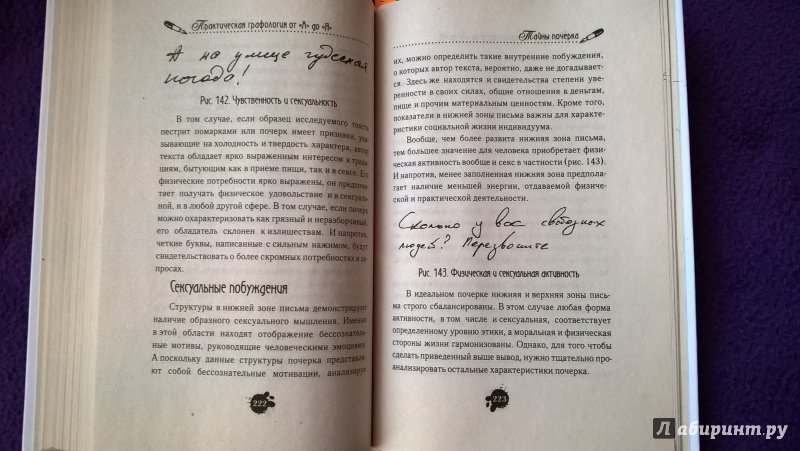 Практическая графология от «А» до «Я»
А на улице чудесная
погода!
Рис. 142. Чувственность и сексуальность
В том случае, если образец исследуемого текста
пестрит помарками или почерк имеет признаки, ука-
зывающие на холодность и твердость характера, автор
текста обладает ярко выраженным интересом к тради-
циям, бытующим как в приеме пищи, так и в сексе. Его
физические потребности ярко выражены, он предпочи-
тает получать физическое удовольствие и в сексуаль-
ной, и в любой другой сфере. В том случае, если почерк
можно охарактеризовать как грязный и неразборчивый,
его обладатель склонен к излишествам. И напротив,
четкие буквы, написанные с сильным нажимом, будут
свидетельствовать о более скромных потребностях и за-
просах.
Сексуальные побуждения
Структуры в нижней зоне письма демонстрируют
наличие образного сексуального мышления. Именно
в этой области находят отображение бессознатель-
ные мотивы, руководящие человеческими эмоциями.
А поскольку данные структуры почерка представля-
ют собой бессознательные мотивации, анализируя
222
Тайны почерка
их, можно определить такие внутренние побуждения,
о которых автор текста, вероятно, даже не догадывает-
ся. Здесь же находятся и свидетельства степени уве-
ренности в своих силах, общие отношения к деньгам,
пище и прочим материальным ценностям. Кроме того,
показатели в нижней зоне письма важны для характе-
ристики социальной жизни индивидуума.
Вообще, чем более развита нижняя зона письма,
тем большее значение для человека приобретает физи-
ческая активность вообще и секс в частности (рис. 143).
И напротив, менее заполненная нижняя зона предпола-
гает наличие меньшей энергии, отдаваемой физичес-
кой и практической деятельности.
Сколько у вас свободных
людей? Перезвоните
Рис. 143. Физическая и сексуальная активность
В идеальном почерке нижняя и верхняя зоны пись-
ма строго сбалансированы. В этом случае любая форма
активности, в том числе и сексуальная, соответствует
определенному уровню этики, а моральная и физическая
стороны жизни гармонизованы. Однако, для того чтобы
сделать приведенный выше вывод, нужно тщательно про-
анализировать остальные характеристики почерка.
223
Лабиринт.ру